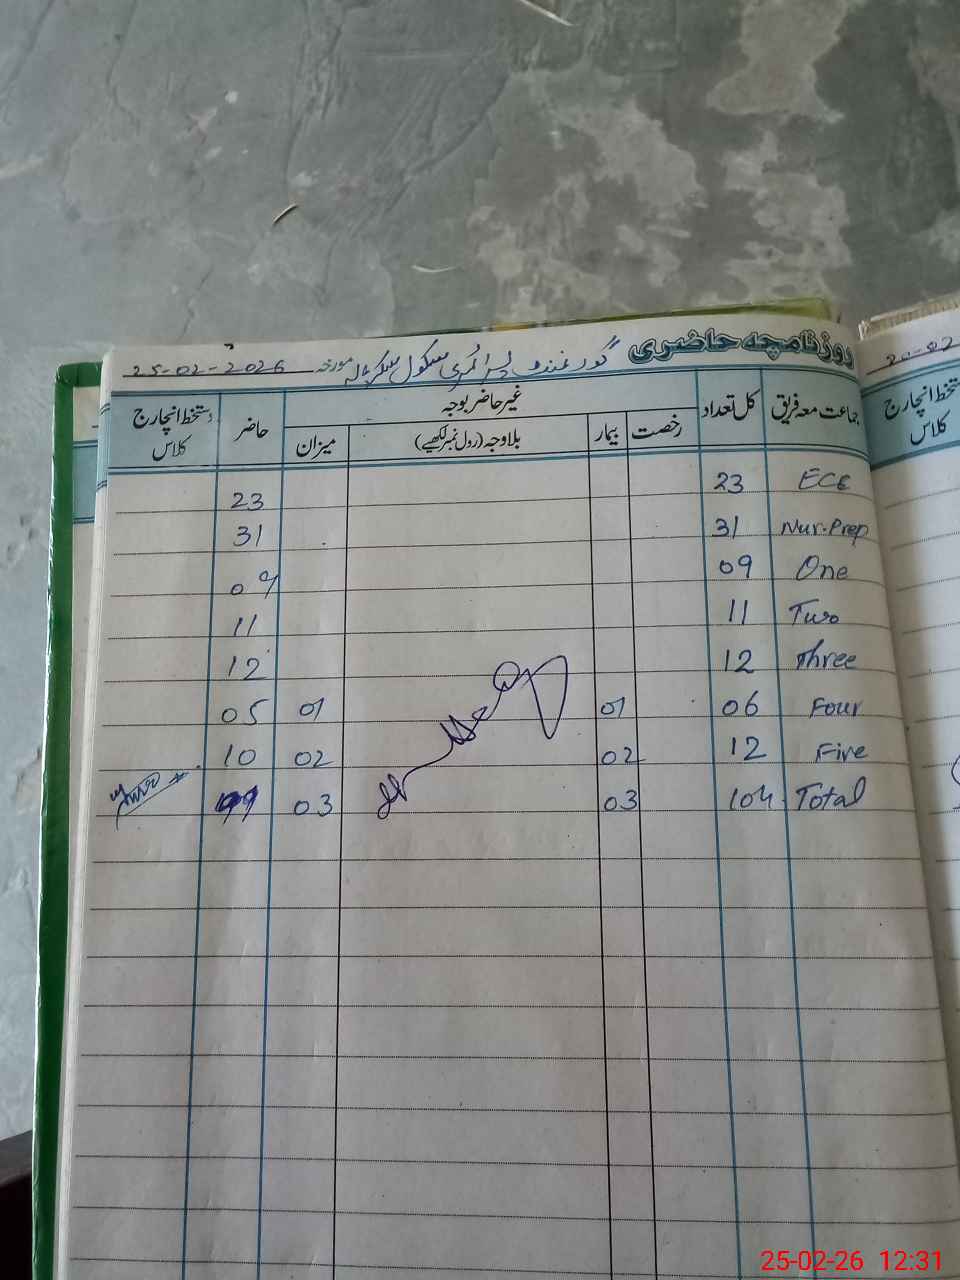 روزنامچہ حاضری گورنمنٹ پرائمری سکول مورخہ 25-02-2026
جماعت معہ فریق کل تعداد غیر حاضر بوجہ حاضر دستخط انچارج کلاس
رخصت بیمار بلاوجہ (رول نمبر لکھیے) میزان
ECE 23 23
Nur.Prep 31 31
One 09 09
Two 11 11
Three 12 12
Four 06 01 01 05
Five 12 02 02 10
Total 104 03 03
20-02
دستخط انچارج
کلاس
25-02-26 12:31